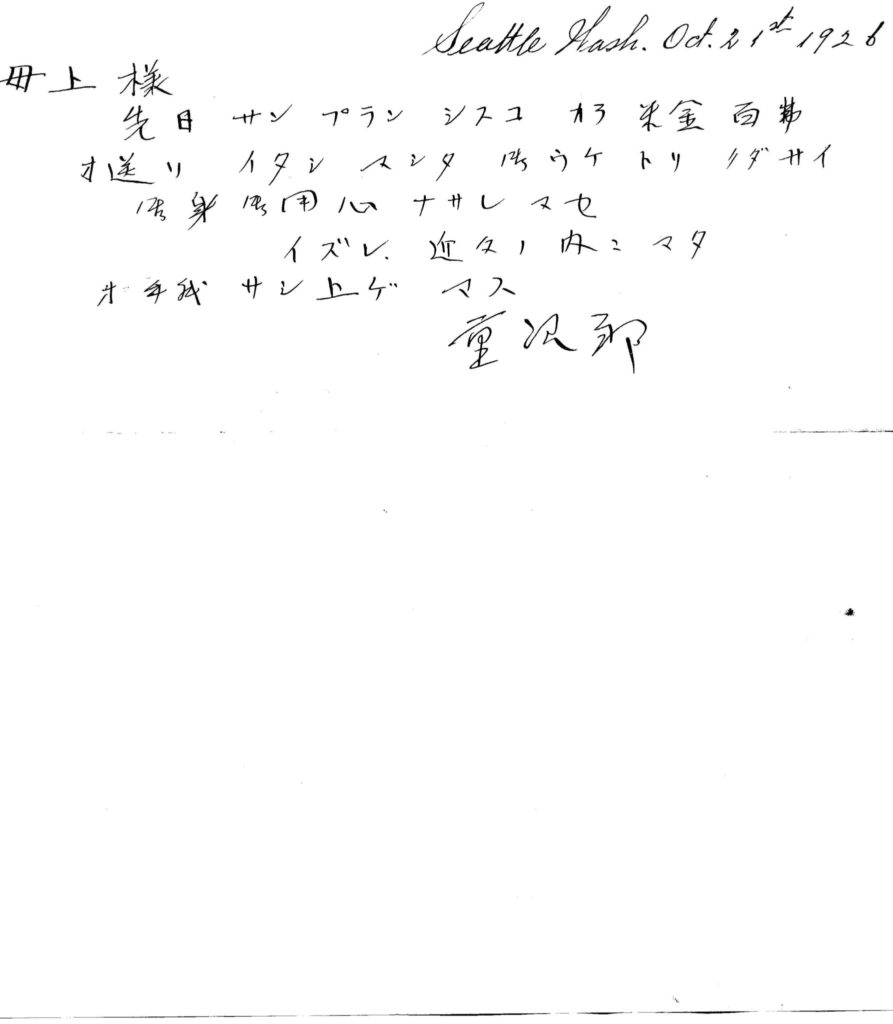 Seattle Wash. Oct. 21st 1926
母上様
先日 サン プラン シスコ カラ 米金 百弗
オ送リ イタシ マシタ 御ウケ トリ クダサイ
御身 御用心 ナサレ マセ
イズレ. 近々ノ内ニ マタ
オ手紙 サシ上ゲ マス
重次郎